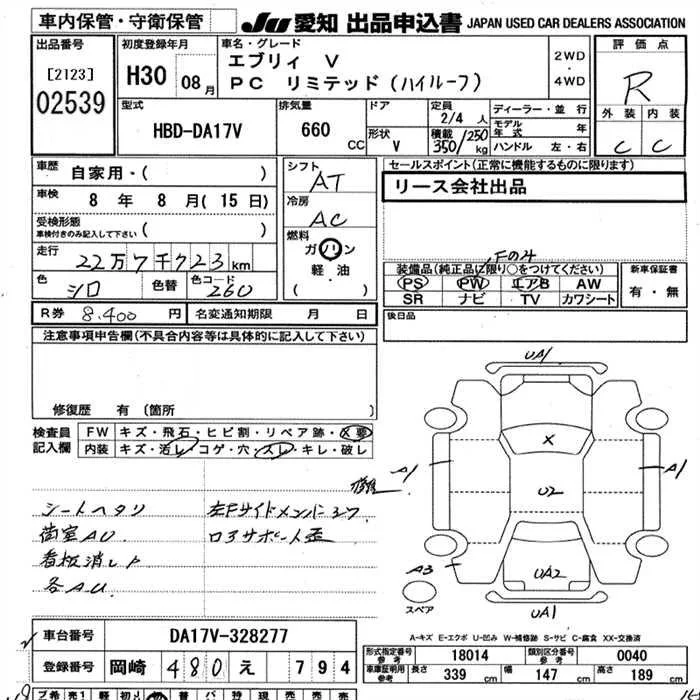 車内保管・守衛保管
JU 愛知 出品申込書 JAPAN USED CAR DEALERS ASSOCIATION
出品番号
[2123]
02539
初度登録年月
H30 08月
車名・グレード
エブリィ V
PC リミテッド(ハイルーフ)
2WD
・
4WD
評価点
R
外装 内装
C C
型式
HBD-DA17V
排気量
660 CC
ドア
形状 V
定員 2/4 人
積載 350/250 kg
ディーラー・並行
モデル年式 年
ハンドル 左・右
車歴 自家用・( )
車検 8年 8月(15日)
受検形態
車検付きのみ記入して下さい ( )
走行 22万7千723km
色 シロ 色替 色コード 260
シフト AT
冷房 AC
燃料
ガソリン
軽油
( )
セールスポイント(正常に機能するものに限ります)
リース会社出品
Fのみ
装備品(純正品に限り○をつけてください)
PS PW エアB AW
SR ナビ TV カワシート
新車保証書
有・無
R券 8,400円 名変通知期限 月 日
後日品
注意事項申告欄(不具合内容等は具体的に記入して下さい)
修復歴 有(箇所 )
検査員
記入欄
FW キズ・飛石・ヒビ割・リペア跡・X要
内装 キズ・汚レ・コゲ・穴・スレ・キレ・破レ
シートヘタリ
荷室AU
看板消し跡
各AU
左Fサイドメンバー
コアサポート歪
UA1
X
A1
A1
U2
A3
UA2
UA1
スペア
A-キズ E-エクボ U-凹み W-補修跡 S-サビ C-腐食 XX-交換済
車台番号 DA17V-328277
登録番号 岡崎 480 え 794
形式指定番号 参考 18014 類別区分番号 参考 0040
車庫証明用 参考 長さ 339cm 幅 147cm 高さ 189cm